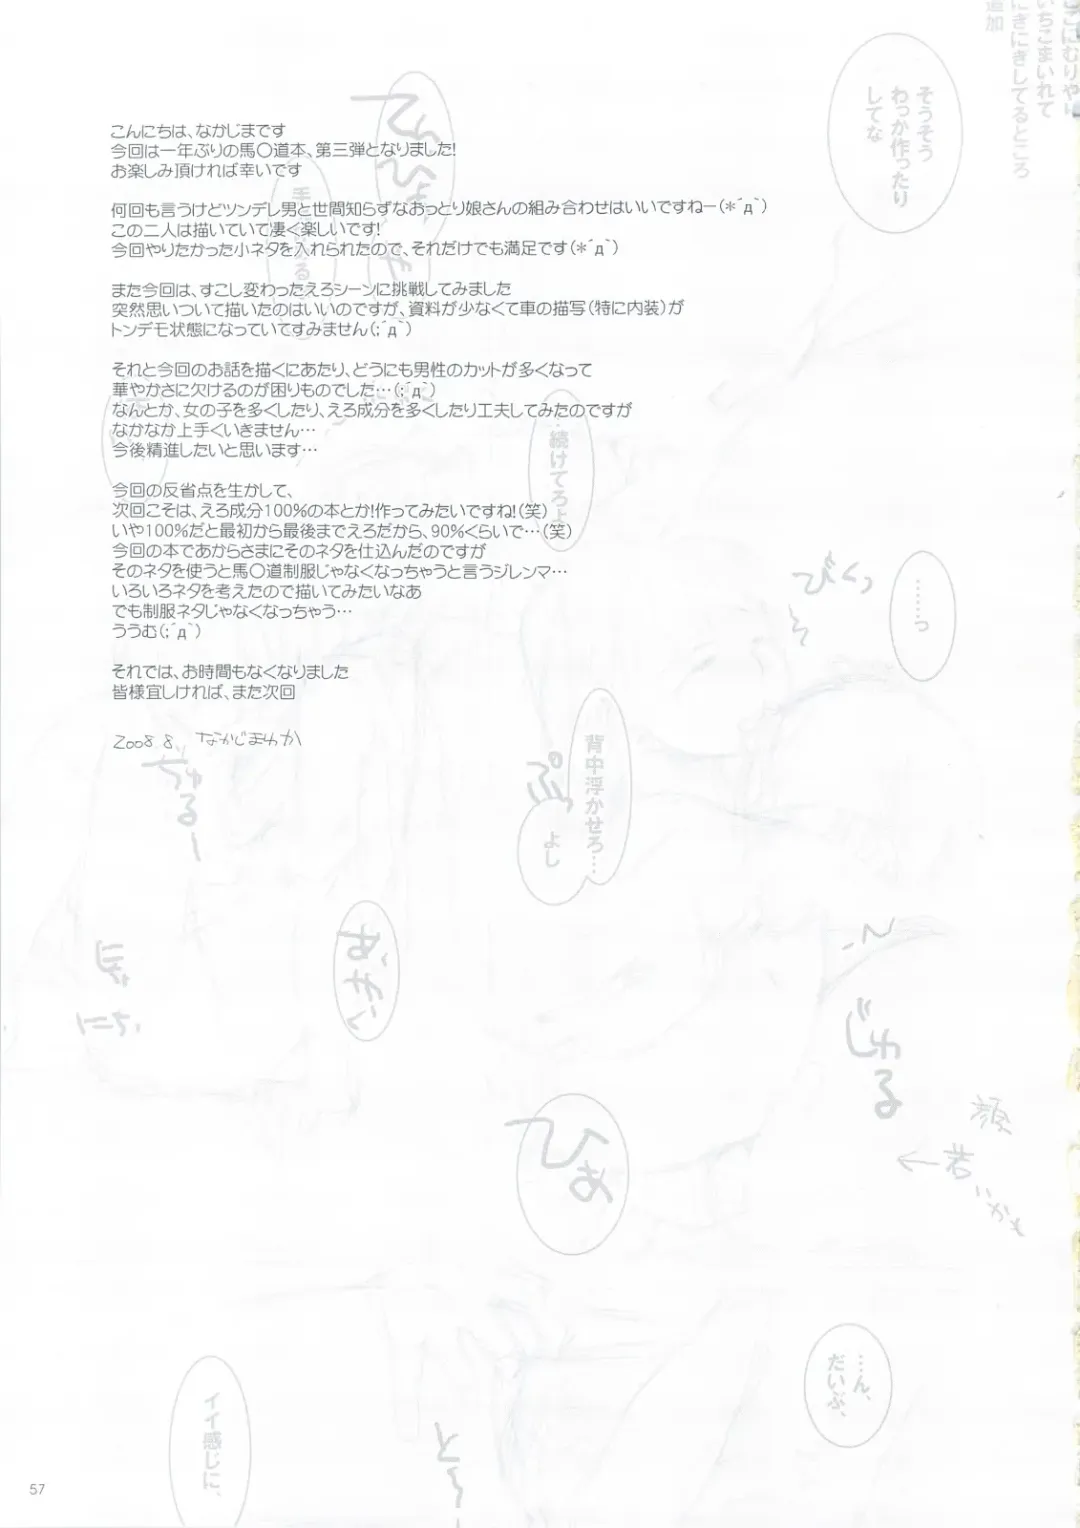 こんにちは、なかじまです
今回は一年ぶりの馬〇道本、第三弾となりました!
お楽しみ頂ければ幸いです
何回も言うけどツンデレ男と世間知らずなおっとり娘さんの組み合わせはいいですねー(*´д`)
この二人は描いていて凄く楽しいです!
今回やりたかった小ネタを入れられたので、それだけでも満足です(*´д`)
また今回は、すこし変わったえろシーンに挑戦してみました
突然思いついて描いたのはいいのですが、資料が少なくて車の描写(特に内装)が
トンデモ状態になっていてすみません(;´д`)
それと今回のお話を描くにあたり、どうにも男性のカットが多くなって
華やかさに欠けるのが困りものでした…(;´д`)
なんとか、女の子を多くしたり、えろ成分を多くしたり工夫してみたのですが
なかなか上手くいきません…
今後精進したいと思います…
今回の反省点を生かして、
次回こそは、えろ成分100%の本とか!作ってみたいですね!(笑)
いや100%だと最初から最後までえろだから、90%くらいで…(笑)
今回の本であからさまにそのネタを仕込んだのですが
そのネタを使うと馬〇道制服じゃなくなっちゃうと言うジレンマ…
いろいろネタを考えたので描いてみたいなあ
でも制服ネタじゃなくなっちゃう…
ううむ(;´д`)
それでは、お時間もなくなりました
皆様宜しければ、また次回
2008.8. なかじまゆか
ここにむりやり
いちごまいれて
にぎにぎしてるところ
追加
そうそう
わっか作ったり
してな
てん
ひょ
…続けてろよ
びくっ
……っ
背中浮かせろ…
ぷっ
よし
ぢゅるー
じゅる
顔
←若
いかも
ひぁ
…ん、
だいぶ、
イイ感じに、
と〜
57